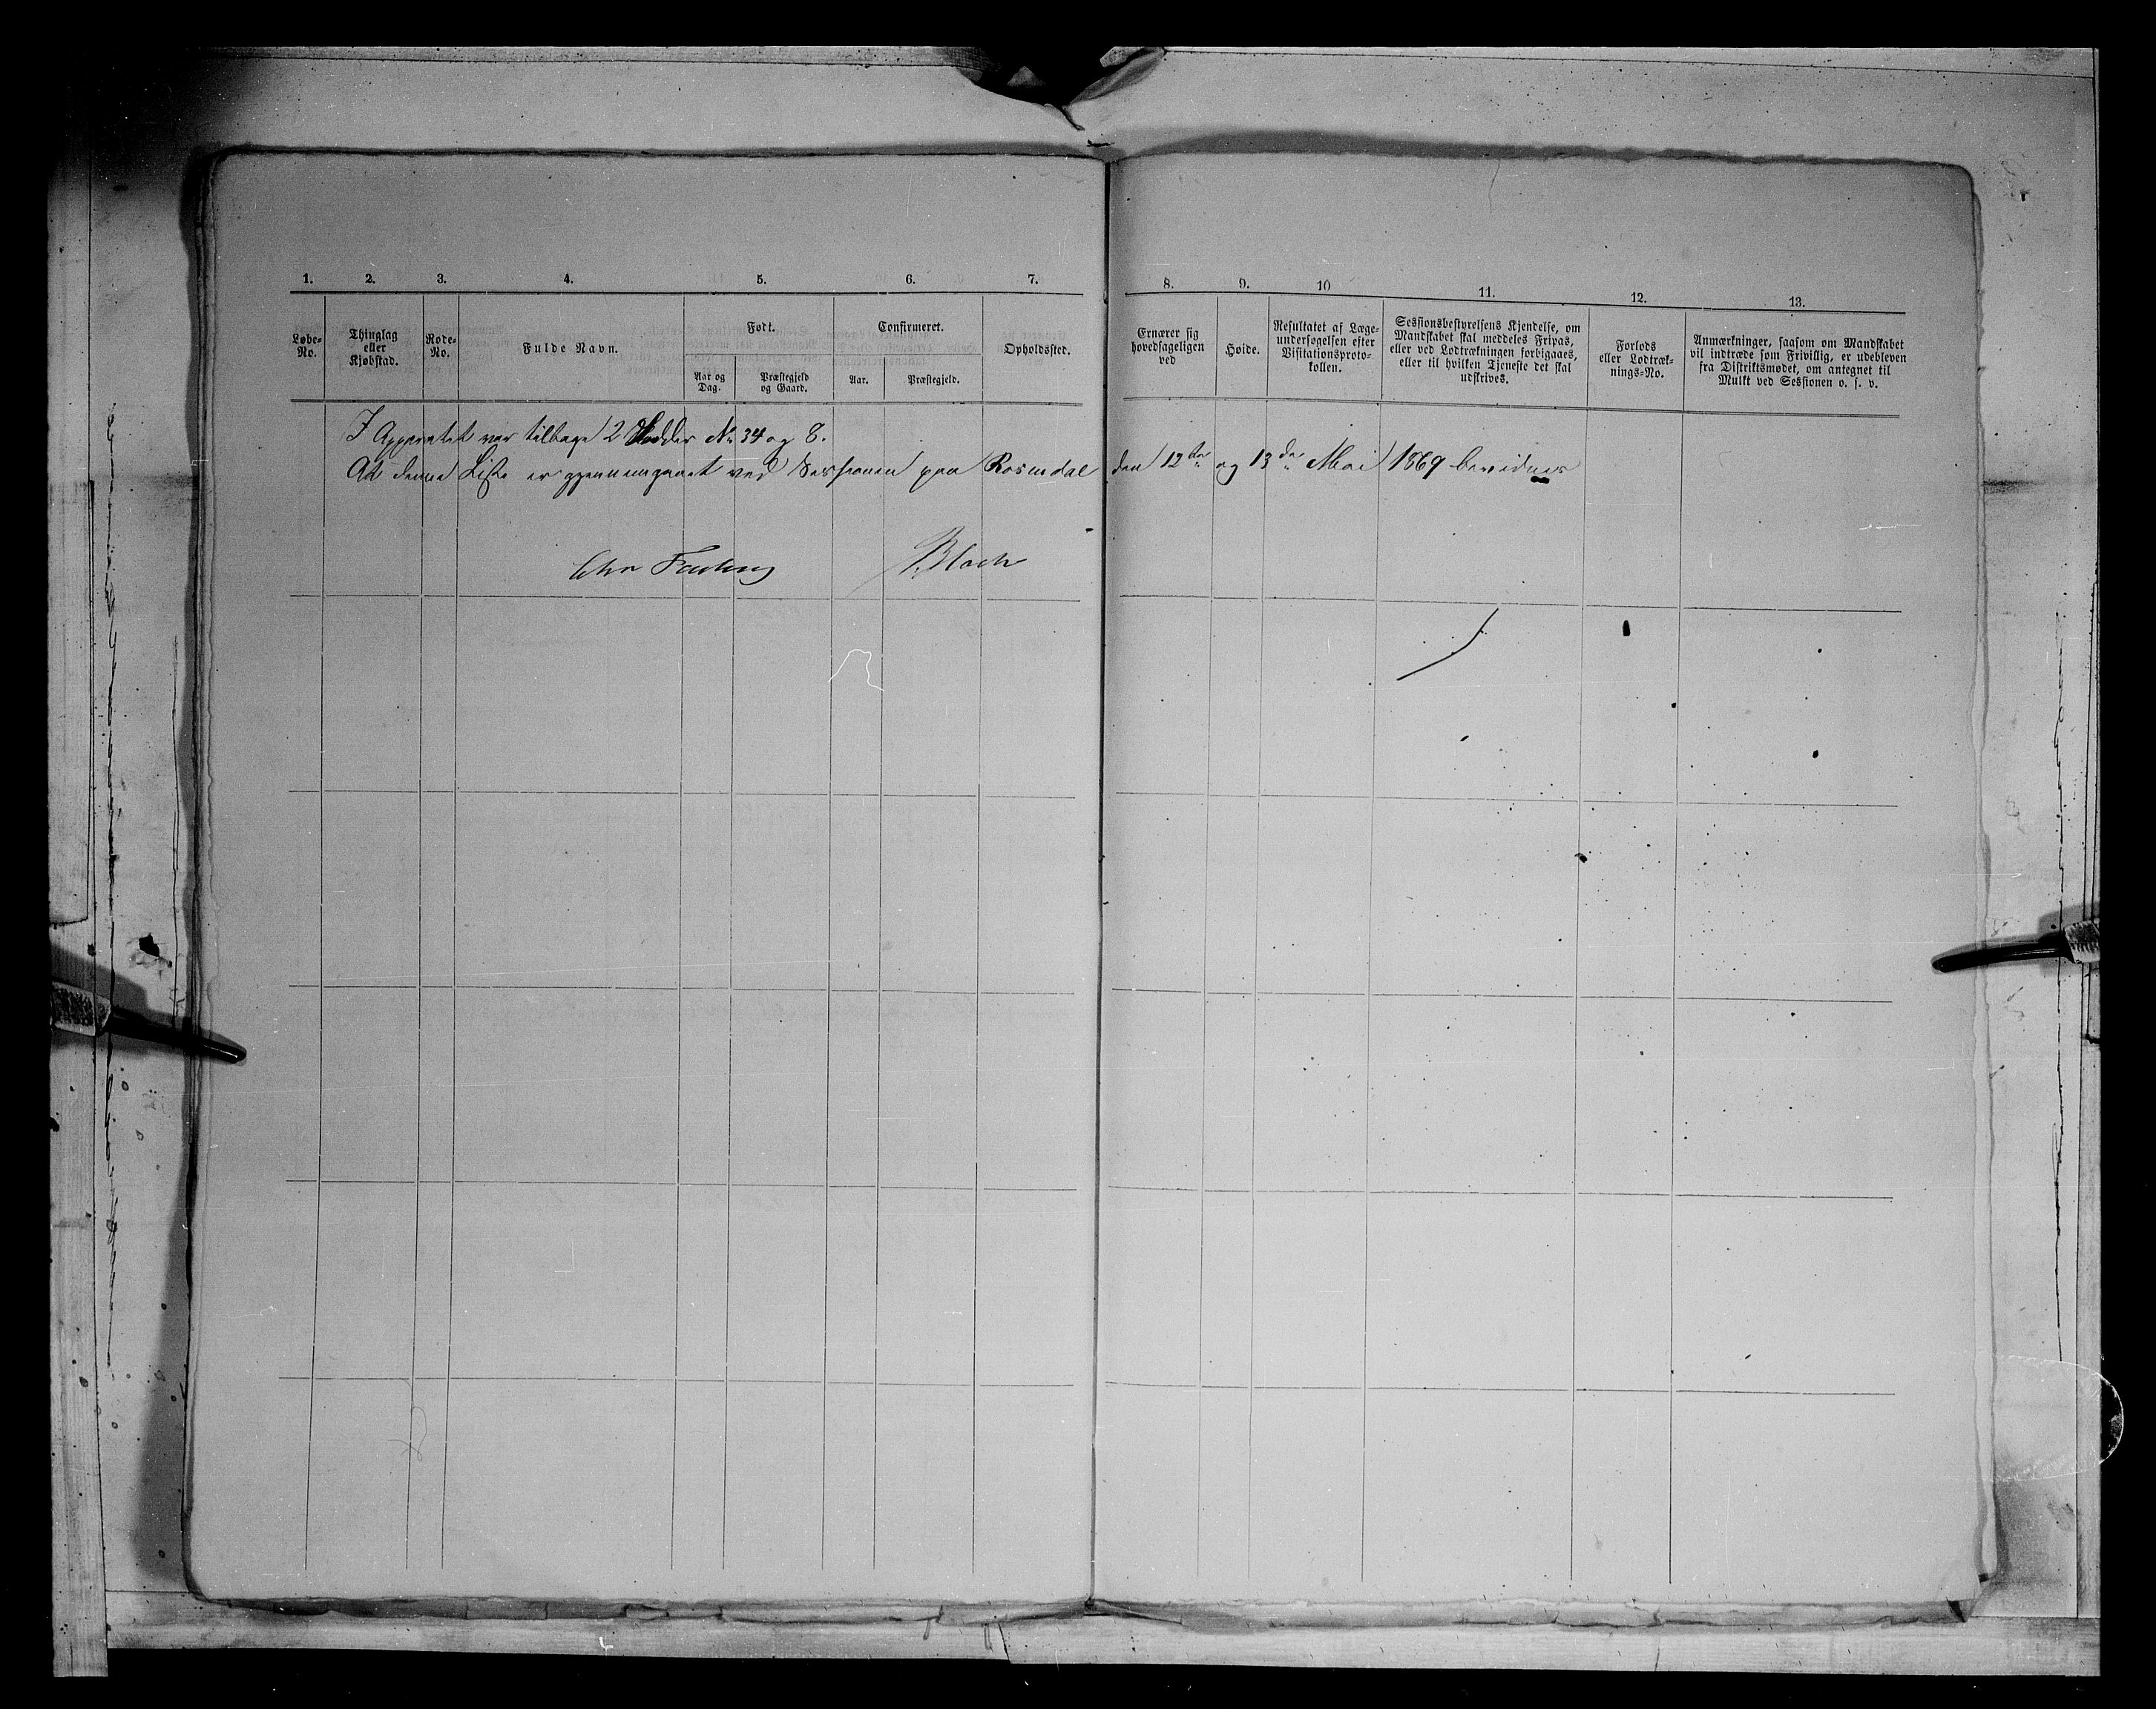 1. 2. 3. 4. 5. 6. 7.
Løbe-No. Thinglag eller Kjøbstad. Rode-No. Fulde Navn. Født. Aar og Dag. Præstegjeld og Gaard. Confirmeret. Aar. Præstegjeld. Opholdssted.
8. 9. 10 11. 12. 13.
Ernærer sig hovedsageligen ved
Høide.
Resultatet af Læge-
undersøgelsen efter
Visitationsproto-
kollen.
Sessionsbestyrelsens Kjendelse, om
Mandskabet skal meddeles Fripas,
eller ved Lodtrækningen forbigaaes,
eller til hvilken Tjeneste det skal
udskrives.
Forlods
eller Lodtræk-
nings-No.
Anmærkninger, saasom om Mandskabet
vil indtræde som Frivillig, er udebleven
fra Distriktsmødet, om antegnet til
Mulkt ved Sessionen o. s. v.
I Apparatet var tilbage 2 Lodder No 34 og 8.
At denne Liste er gjennemgaaet ved Sessionen paa Rosendal den 12te og 13de Mai 1869 bevidnes
Chr Bloch